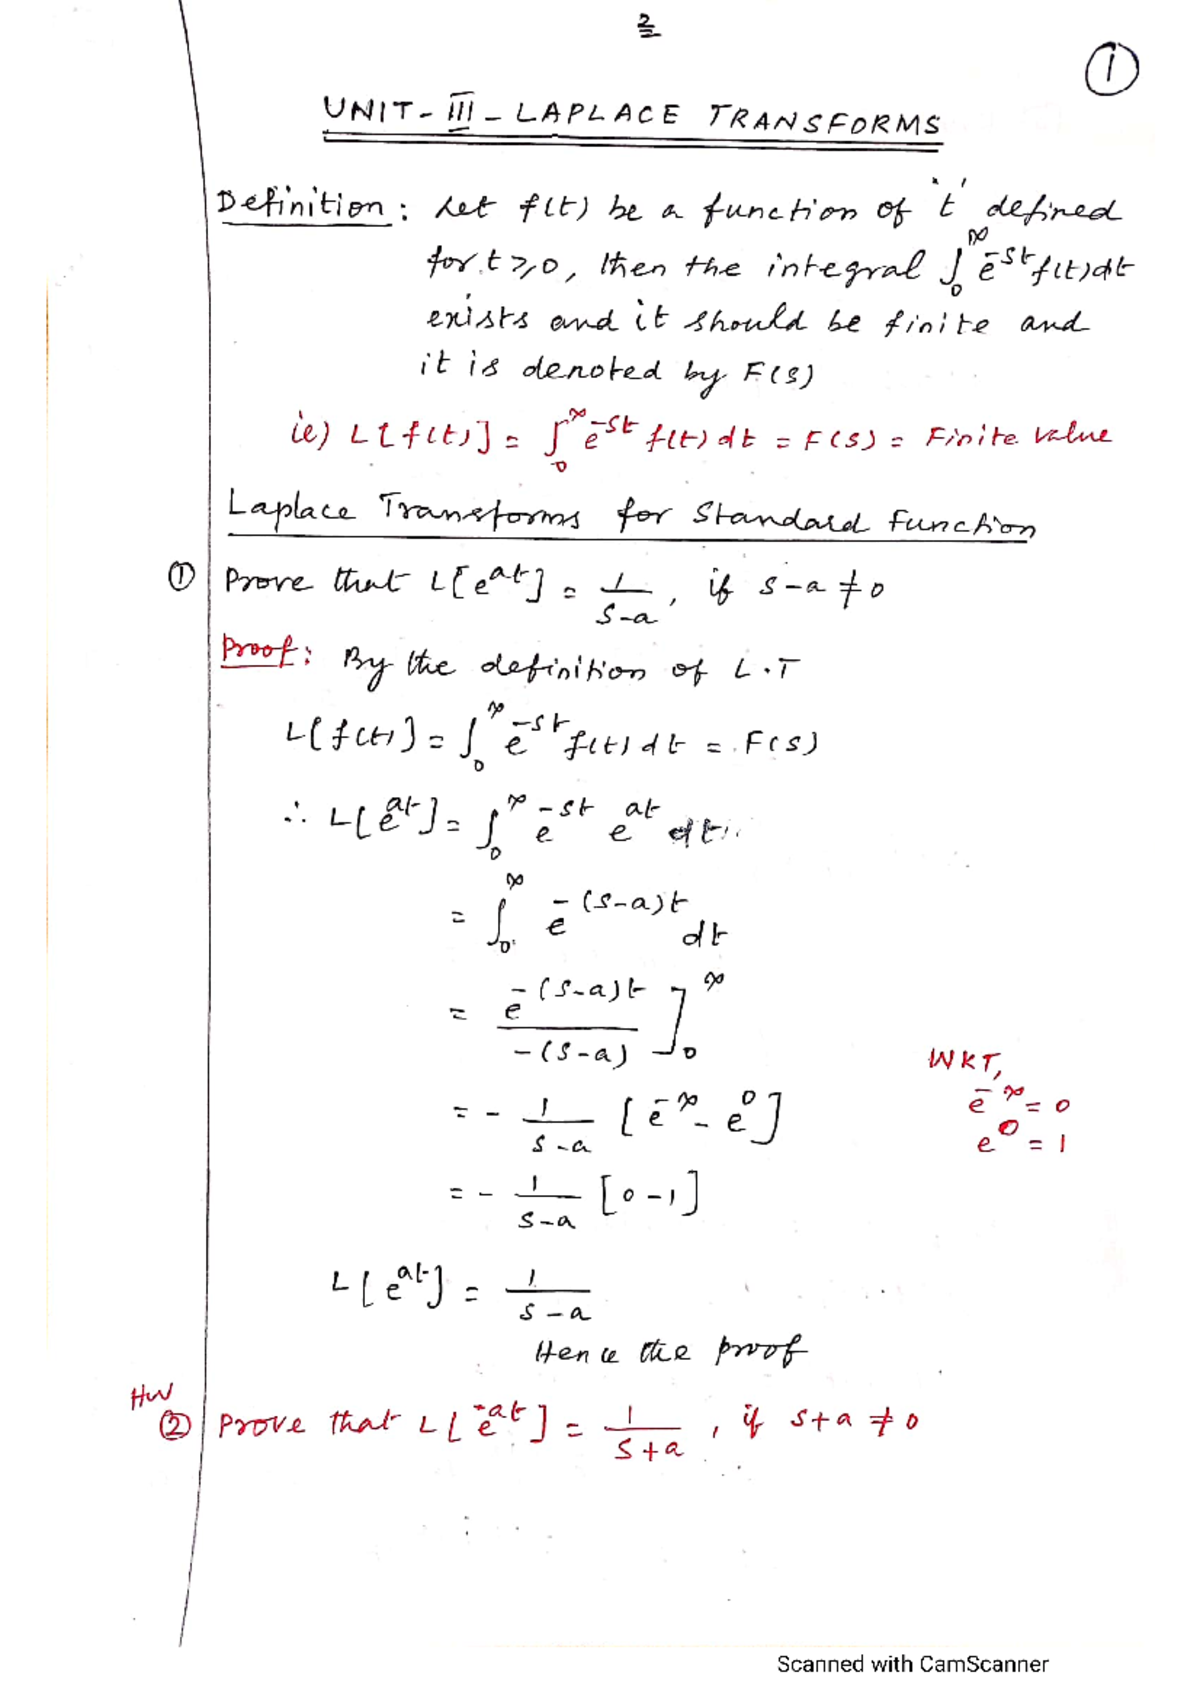 2
①
UNIT - III - LAPLACE TRANSFORMS
Definition : Let f(t) be a function of 't' defined
for t ≥ 0, then the integral ∫₀^∞ e^-st f(t) dt
exists and it should be finite and
it is denoted by F(s)
ie) L[f(t)] = ∫₀^∞ e^-st f(t) dt = F(s) = Finite value
Laplace Transforms for Standard Function
① Prove that L[e^at] = 1/(s-a), if s-a ≠ 0
Proof : By the definition of L.T
L[f(t)] = ∫₀^∞ e^-st f(t) dt = F(s)
∴ L[e^at] = ∫₀^∞ e^-st e^at dt
= ∫₀^∞ e^-(s-a)t dt
= e^-(s-a)t / -(s-a) ]₀^∞
WKT,
= - 1/(s-a) [e^-∞ - e^0]
e^-∞ = 0
e^0 = 1
= - 1/(s-a) [0-1]
L[e^at] = 1/(s-a)
Hence the proof
HW
② Prove that L[e^-at] = 1/(s+a), if s+a ≠ 0
Scanned with CamScanner